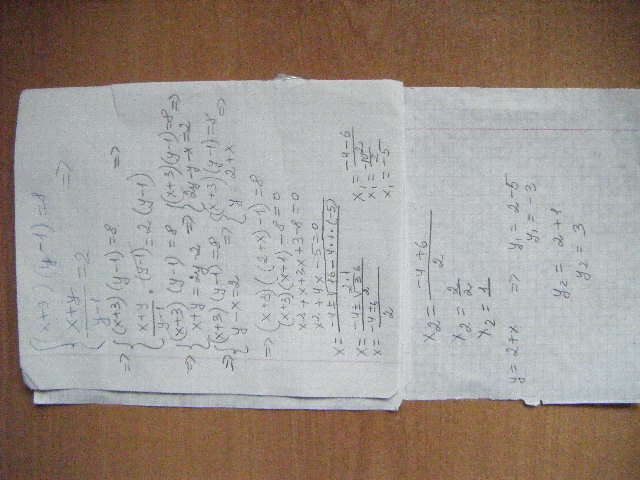 { (x+3)(y-1)=8
{ x+y/y-1 = 2 =>
=> { (x+3)(y-1)=8 =>
{ x+y/y-1 • (y-1) = 2(y-1)
=> { (x+3)(y-1)=8 => { (x+3)(y-1)=8 =>
{ x+y=2y-2 { 2y-y-x=2
=> { (x+3)(y-1)=8 => { (x+3)(y-1)=8 =>
{ y-x=2 { y = 2+x
=> (x+3)((2+x)-1)=8
(x+3)(x+1)-8=0
x²+x+2x+3-8=0
x²+4x-5=0
x= -4±√16-4•1•(-5)/2•1
x= -4±√36/2
x= -4±6/2
x₁= -4-6/2
x₁= -10/2
x₁=-5
x₂= -4+6/2
x₂= 2/2
x₂= 1
y=2+x => y₁=2-5
y₁=-3
y₂= 2+1
y₂=3